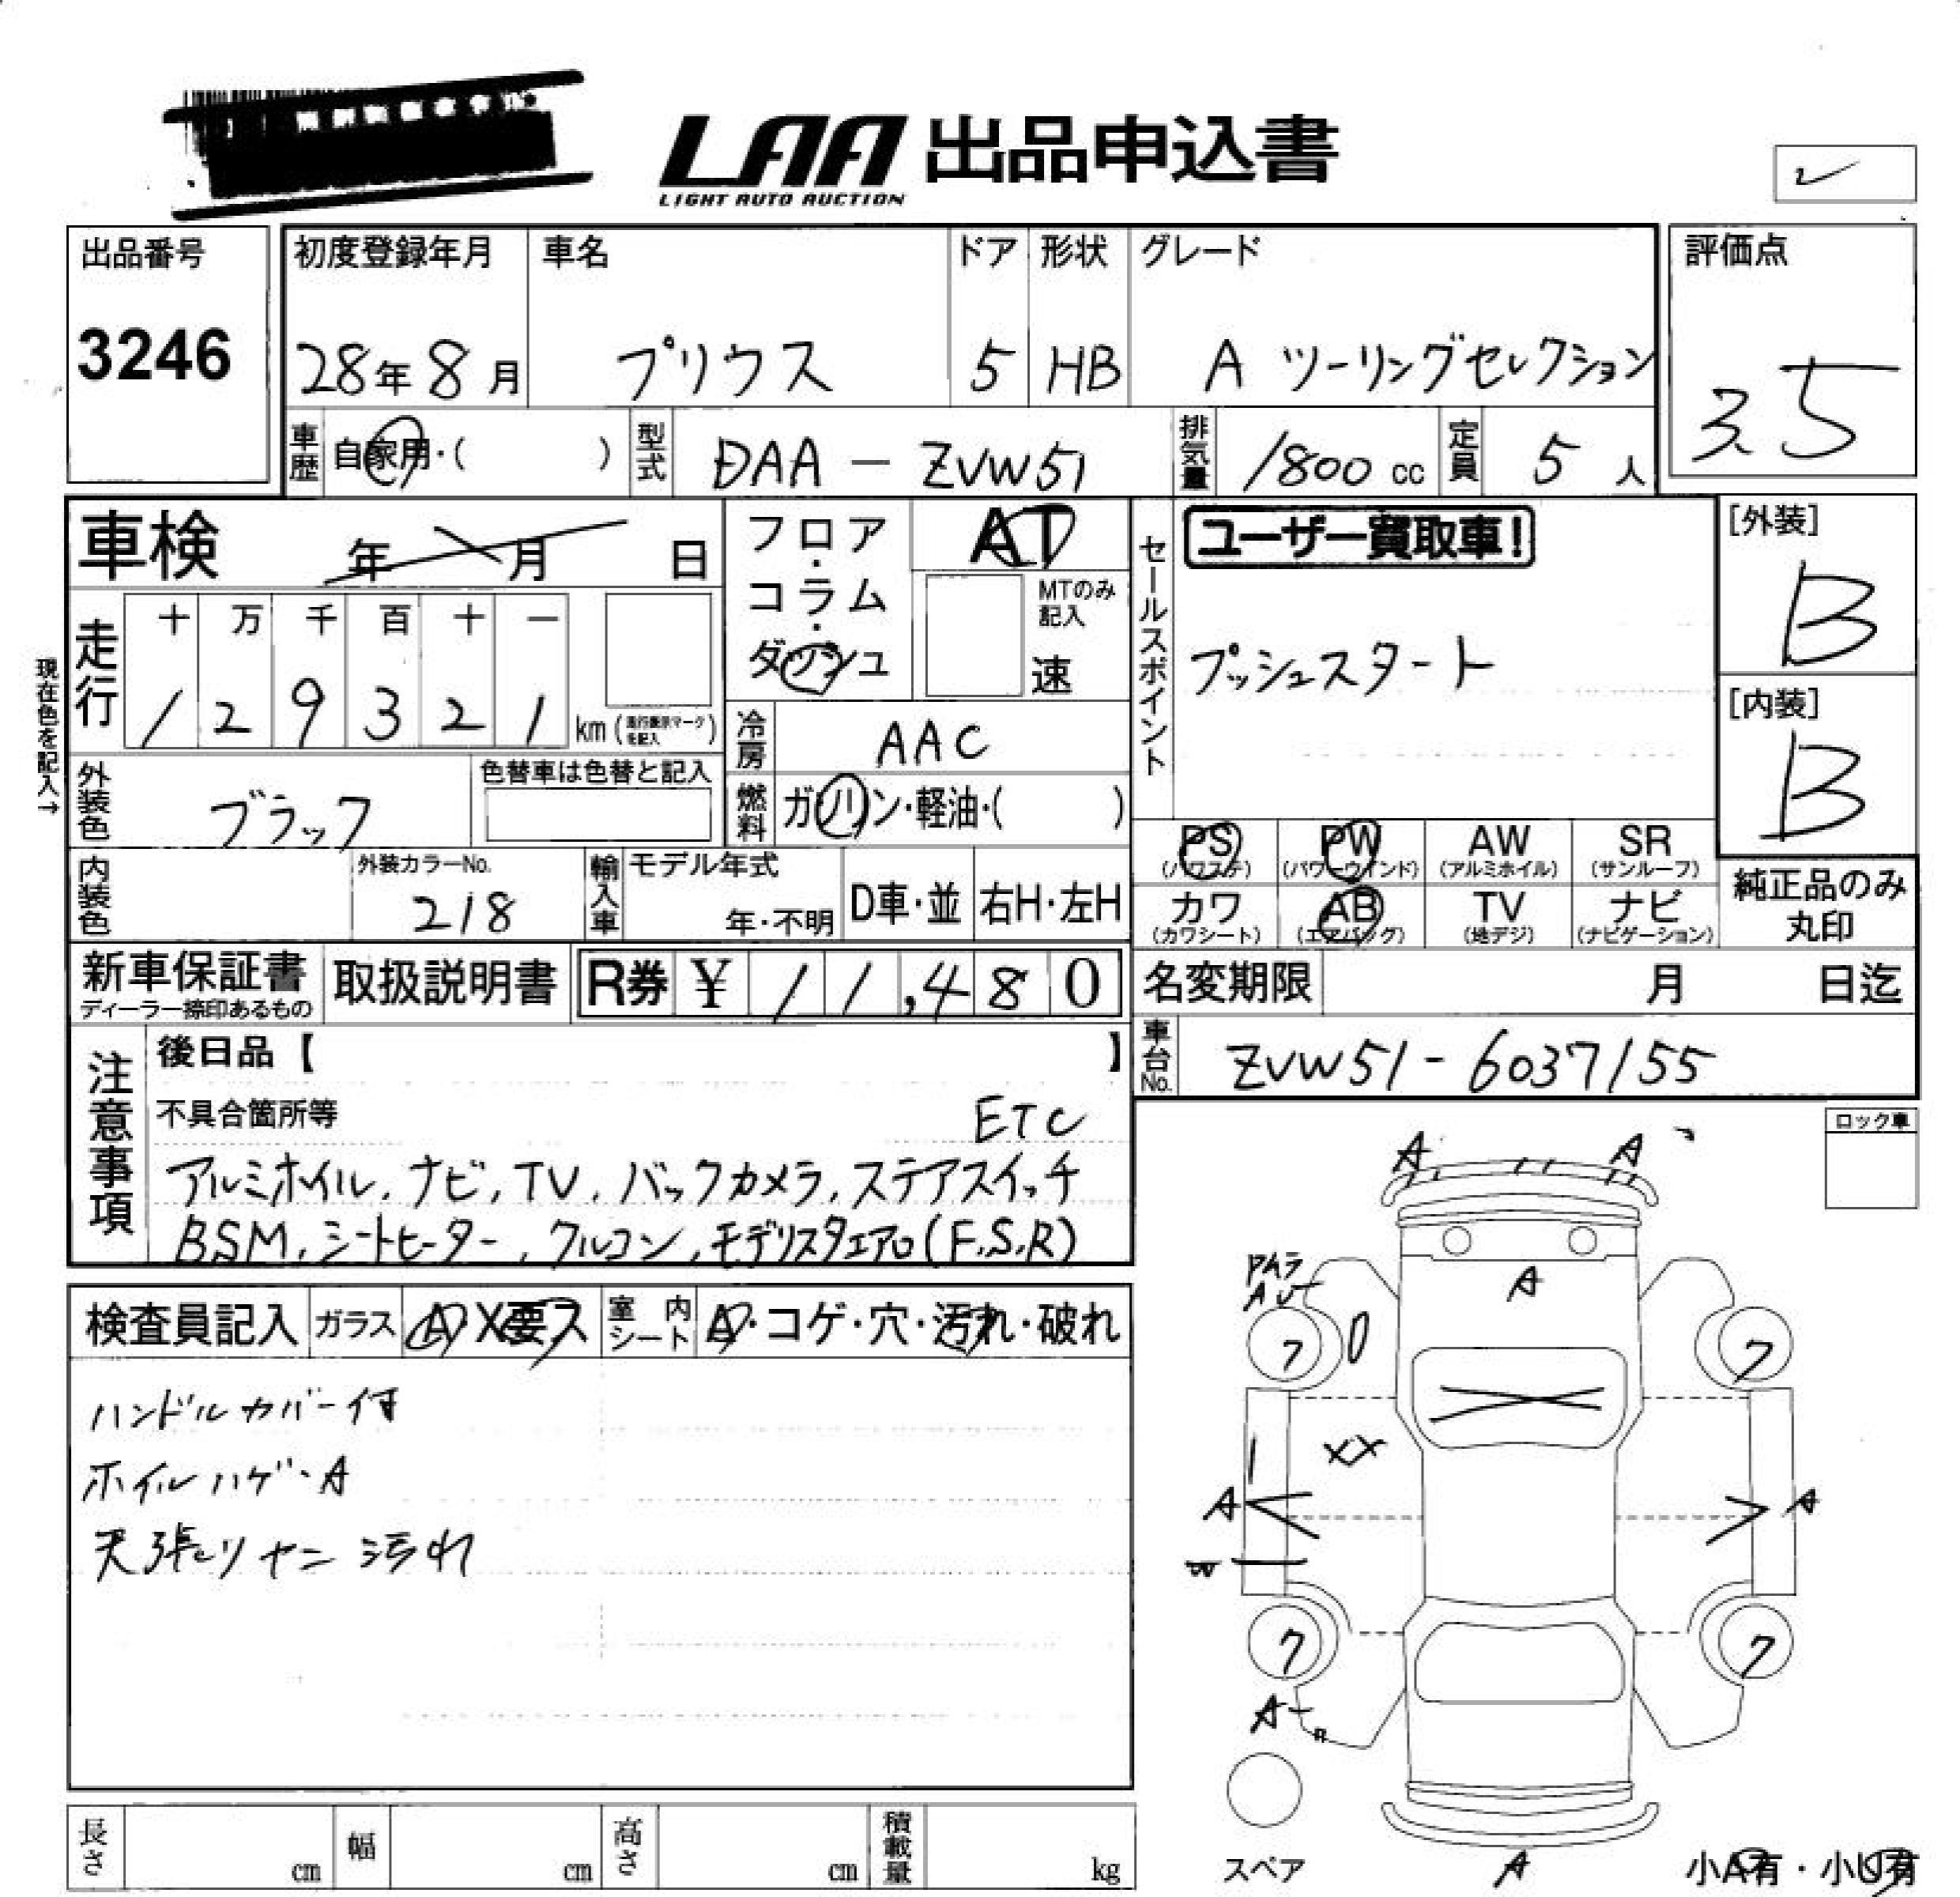 LAA 出品申込書
LIGHT AUTO AUCTION
出品番号
3246
初度登録年月
28年8月
車名
プリウス
ドア
5
形状
HB
グレード
A ツーリングセレクション
評価点
3.5
車歴
自家用・( )
型式
DAA - ZVW51
排気量
1800 cc
定員
5 人
車検 年 月 日
フロア・コラム・ダッシュ
AT
MTのみ記入
速
セールスポイント
ユーザー買取車!
プッシュスタート
[外装]
B
[内装]
B
現在色を記入→
走行
十 万 千 百 十 一
1 2 9 3 2 1 km
冷房
AAC
外装色
ブラック
色替車は色替と記入
燃料
ガソリン・軽油・( )
PS (パワステ)
PW (パワーウインド)
AW (アルミホイル)
SR (サンルーフ)
カワ (カワシート)
AB (エアバッグ)
TV (地デジ)
ナビ (ナビゲーション)
純正品のみ
丸印
内装色
外装カラーNo.
218
輸入車
モデル年式
年・不明
D車・並
右H・左H
新車保証書
ディーラー捺印あるもの
取扱説明書
R券 ¥ 11,480
名変期限 月 日迄
車台No.
ZVW51-6037155
注意事項
後日品【 】
不具合箇所等
ETC
アルミホイル, ナビ, TV, バックカメラ, ステアスイッチ
BSM, シートヒーター, クルコン, モデリスタエアロ(F,S,R)
ロック車
検査員記入
ガラス
A X 要ス
室内シート
A・コゲ・穴・汚れ・破れ
ハンドルカバー付
ホイルハゲ・A
天張りヤニ汚れ
A A
A
ワ ワ
XX
A A
W
ワ ワ
A
スペア
A
小A有・小U有
長さ cm
幅 cm
高さ cm
積載量 kg